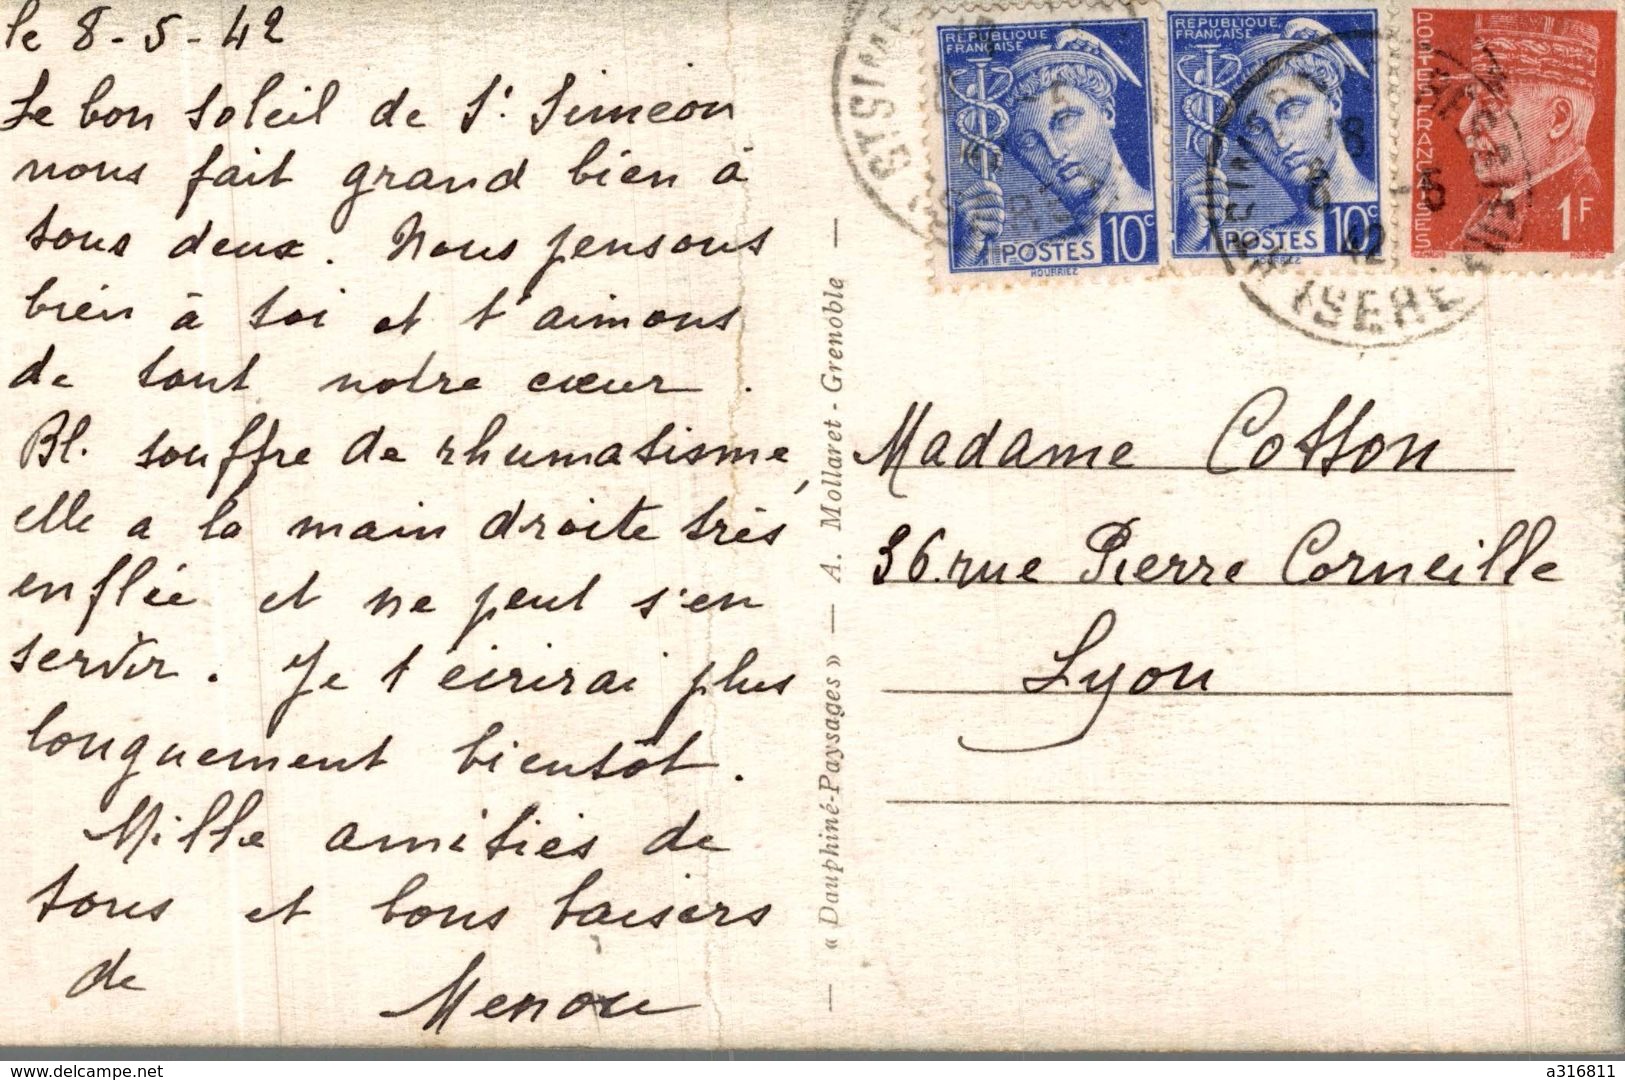 le 8-5-42
Le bon soleil de St Siméon
nous fait grand bien à
tous deux. Nous pensons
bien à toi et t'aimons
de tout notre cœur.
Bl. souffre de rhumatisme,
elle a la main droite très
enflée et ne peut s'en
servir. Je t'écrirai plus
longuement bientôt.
Mille amitiés de
tous et bons baisers
de Menou
« Dauphiné-Paysages » — A. Mollaret - Grenoble —
RÉPUBLIQUE
FRANÇAISE
POSTES 10c
HOURRIEZ
RÉPUBLIQUE
FRANÇAISE
POSTES 10c
HOURRIEZ
POSTES FRANÇAISES
1F
8
5
42
ISERE
Madame Cottson
36. rue Pierre Corneille
Lyon
delcampe.net
a316811